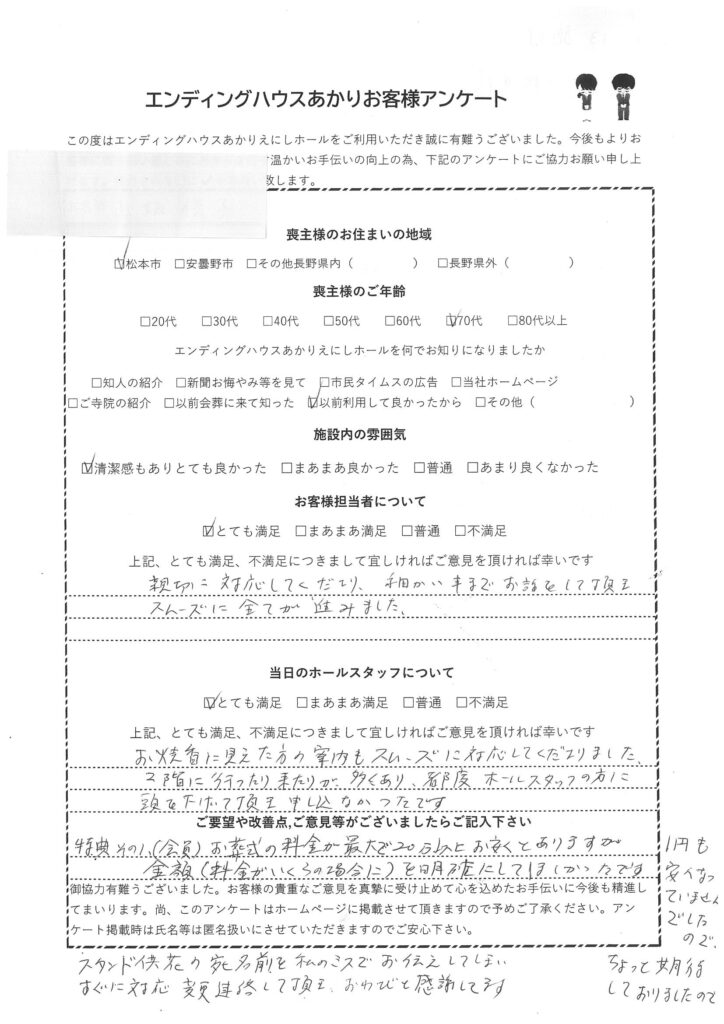 エンディングハウスあかりお客様アンケート
この度はエンディングハウスあかりえにしホールをご利用いただき誠に有難うございました。今後もよりお
温かいお手伝いの向上の為、下記のアンケートにご協力お願い申し上
致します。
喪主様のお住まいの地域
☑松本市 □安曇野市 □その他長野県内（ ） □長野県外（ ）
喪主様のご年齢
□20代 □30代 □40代 □50代 □60代 ☑70代 □80代以上
エンディングハウスあかりえにしホールを何でお知りになりましたか
□知人の紹介 □新聞お悔やみ等を見て □市民タイムスの広告 □当社ホームページ
□ご寺院の紹介 □以前会葬に来て知った ☑以前利用して良かったから □その他（ ）
施設内の雰囲気
☑清潔感もありとても良かった □まあまあ良かった □普通 □あまり良くなかった
お客様担当者について
☑とても満足 □まあまあ満足 □普通 □不満足
上記、とても満足、不満足につきまして宜しければご意見を頂ければ幸いです
親切に対応してくださり、細かい事までお話をして頂き
スムーズに全てが進みました、
当日のホールスタッフについて
☑とても満足 □まあまあ満足 □普通 □不満足
上記、とても満足、不満足につきまして宜しければご意見を頂ければ幸いです
お焼香に見えた方の案内もスムーズに対応してくださりました、
2階に行ったり来たりが多くあり、都度ホールスタッフの方に
頭を下げて頂き申し込なかったです
ご要望や改善点,ご意見等がございましたらご記入下さい
特典その1、(会員)お葬式の料金が最大で20万以上お安くとありますが
金額(料金がいくらの場合に)を明確にしてほしかったです
1円も
安くなっ
ていません
でした
ので、
御協力有難うございました。お客様の貴重なご意見を真摯に受け止めて心を込めたお手伝いに今後も精進し
てまいります。尚、このアンケートはホームページに掲載させて頂きますので予めご了承ください。アン
ケート掲載時は氏名等は匿名扱いにさせていただきますのでご安心下さい。
スタンド供花の宛名前を私のミスでお伝えしてしまい
すぐに対応 連絡して頂き、おわびと感謝してます
ちょっと期待
しておりましたので